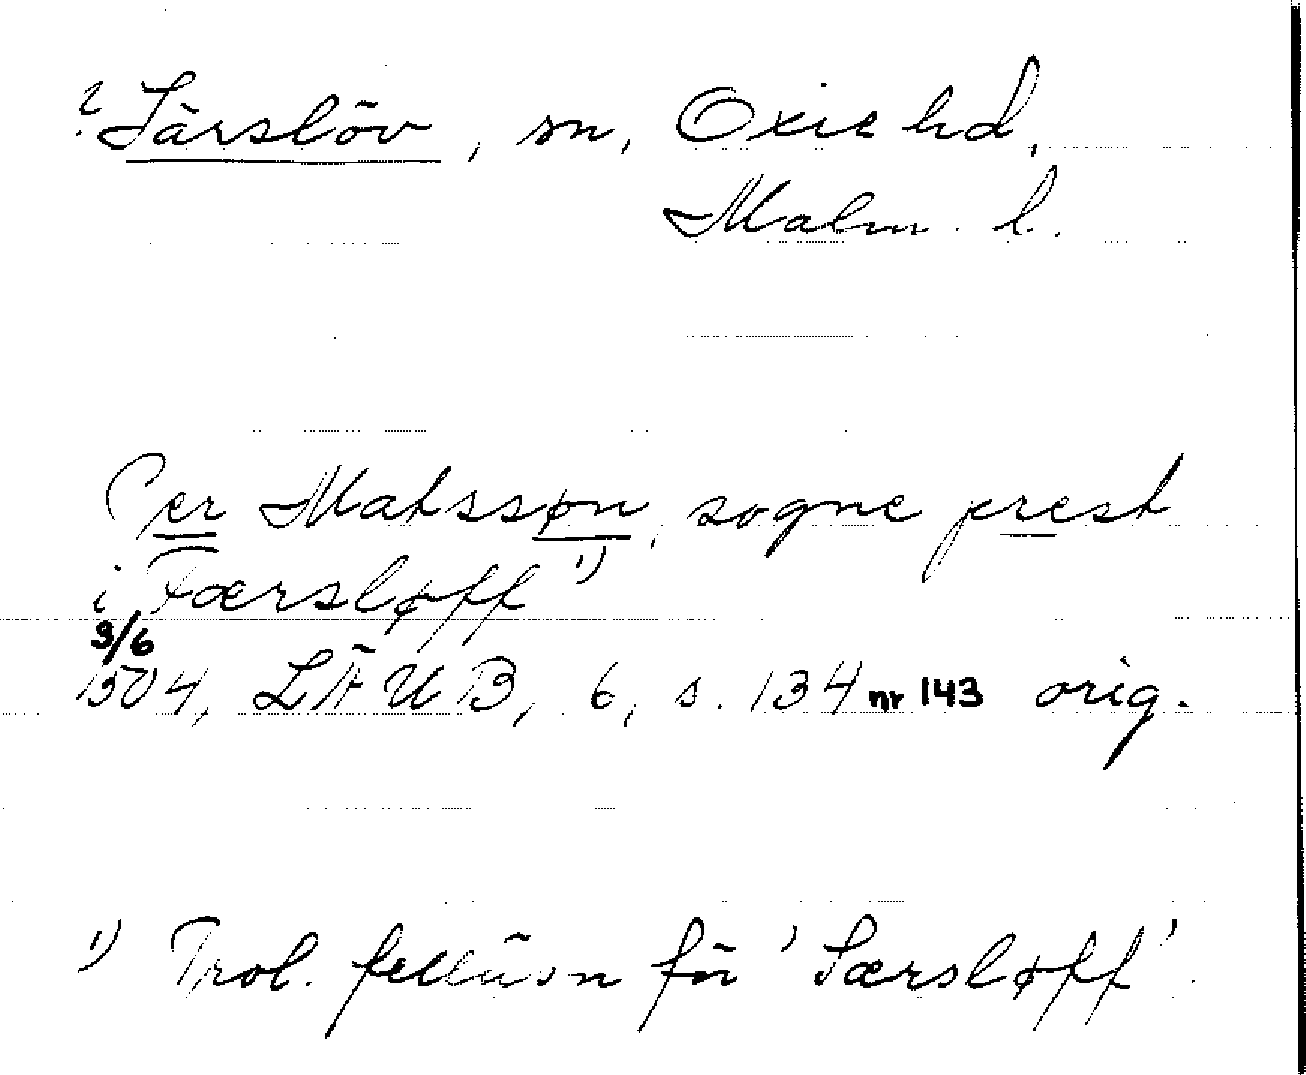 ? Särslöv, sn, Oxie hd,
Malm. l.
Per Matssøn, sogne prest
i Færsløff 1)
9/6
1504, LÄUB, 6, s. 134 nr 143 orig.
1) Trol. felläsn för 'Særsløff'.